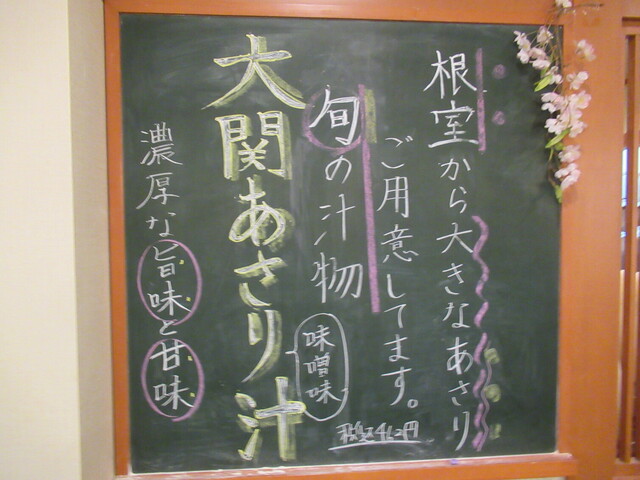 根室から大きなあさり
ご用意してます。
旬の汁物
大関あさり汁
味噌味
税込462円
濃厚な旨味と甘味